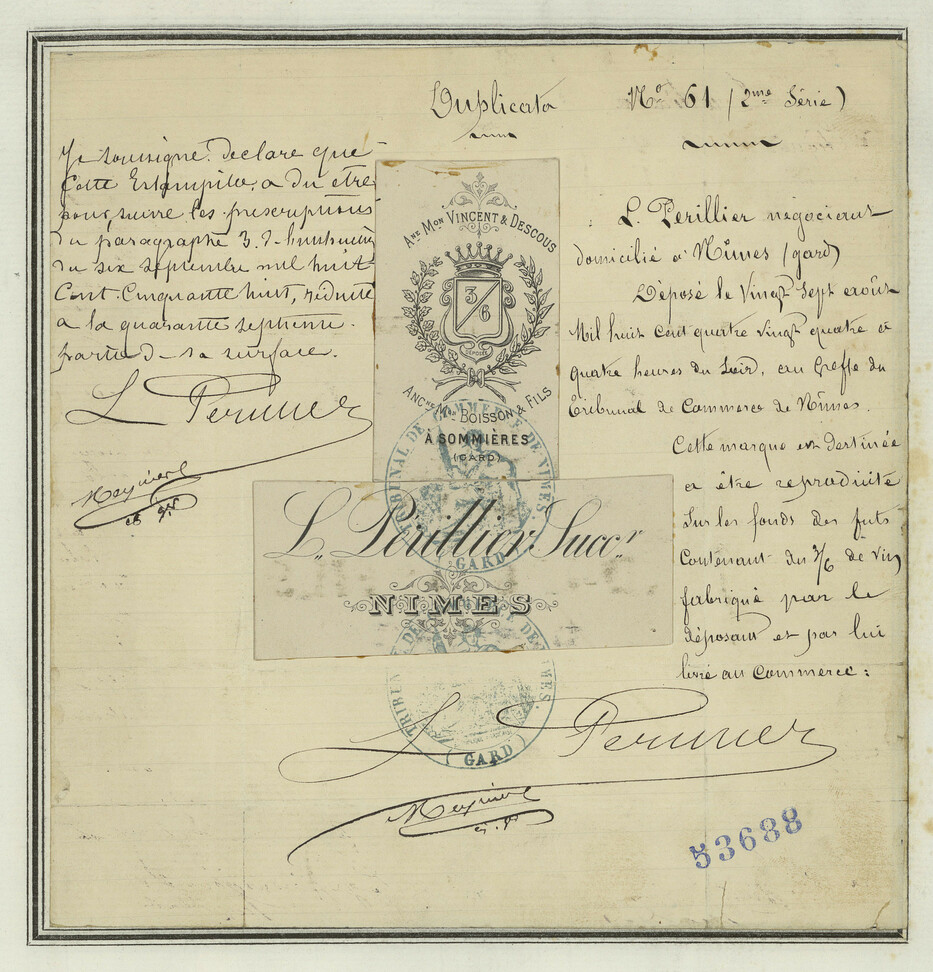 Duplicata
No 61 (2me Série)
Je soussigné déclare que
Cette Estampille, a du être
pour suivre les prescriptions
du paragraphe 3.
du six septembre mil huit
Cent Cinquante huit, réduite
a la quarante septieme
partie de sa surface.
L Perillier
Meynier
ANE MON VINCENT & DESCOUS
3/6
DÉPOSÉE
ANCNE MON BOISSON & FILS
À SOMMIÈRES
(GARD)
L. Périllier Succr
NIMES
L. Périllier négociant
domicilié à Nîmes (gard)
Déposé le Vingt Sept août
Mil huit cent quatre vingt quatre à
quatre heures du Soir, au Greffe du
Tribunal de Commerce de Nîmes.
Cette marque est destinée
a être reproduite
Sur les fonds des futs
Contenant du 3/6 de Vin
fabriqué par le
déposant et par lui
livré au Commerce :
TRIBUNAL DE COMMERCE DE NIMES.
(GARD)
TRIBUNAL DE COMMERCE DE NIMES.
(GARD)
L Perillier
Meynier
53688